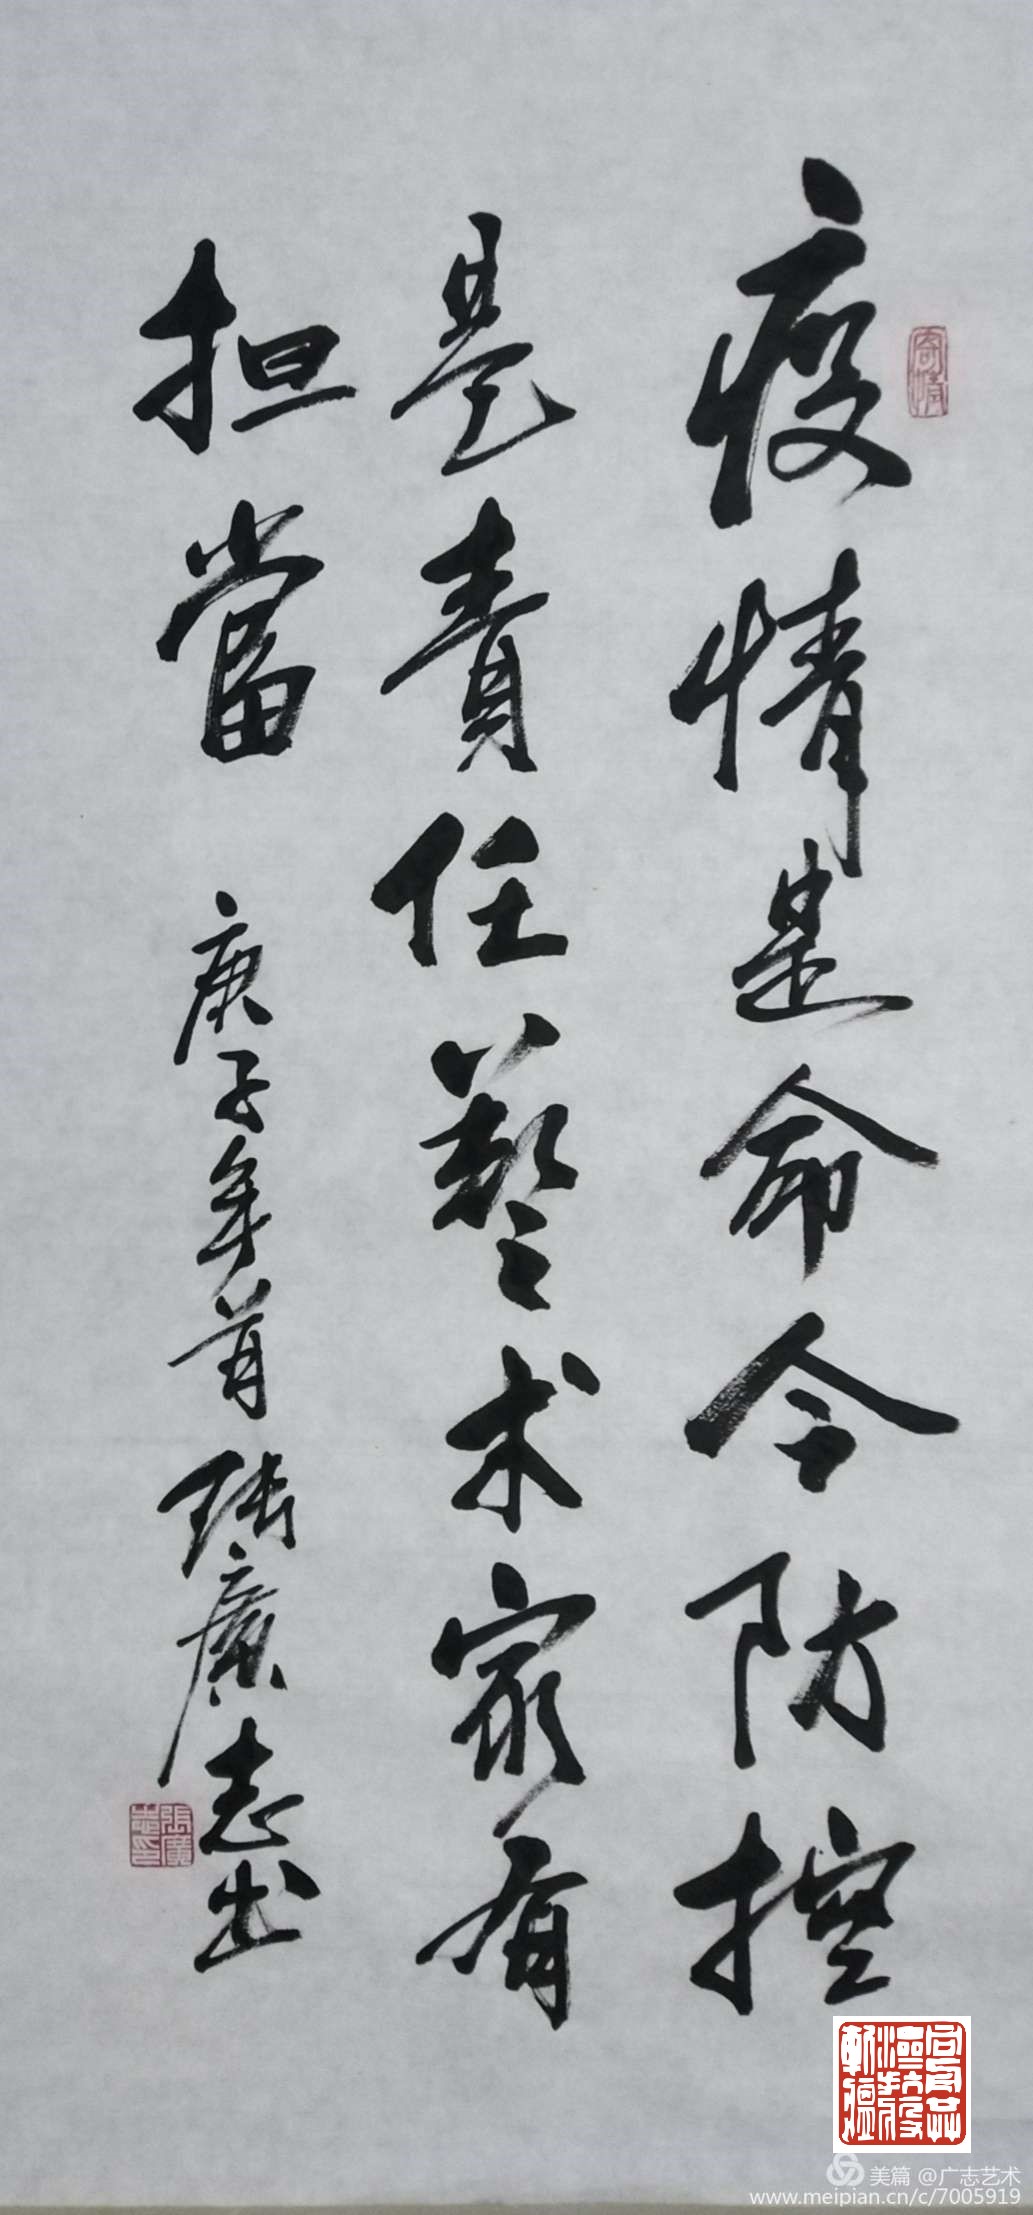 寄情
疫情是命令防控
是責任藝术家有
担當
庚子年首 张廣志书
張廣志印
美篇 @广志艺术
www.meipian.cn/c/7005919